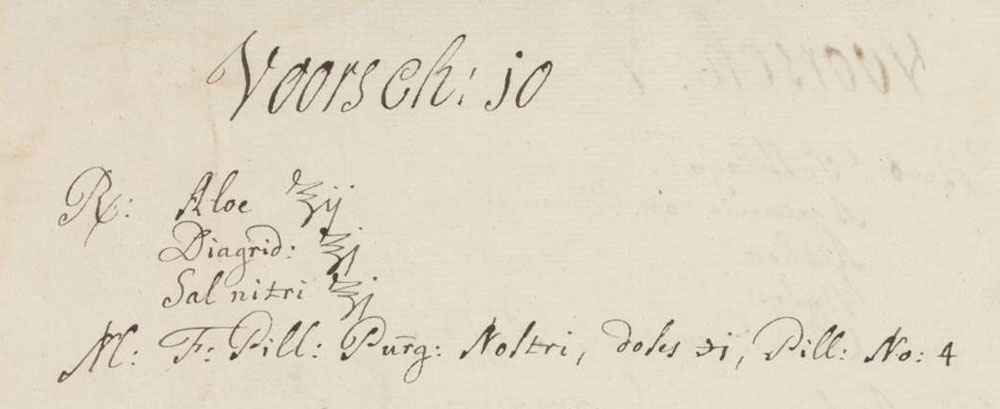 Voorsch: 10
℞: Aloe ℥ij
Diagrid: ℥j
Sal nitri ℥j
M: F: Pill: Purg: Nostri, doses ℈i, Pill: No: 4